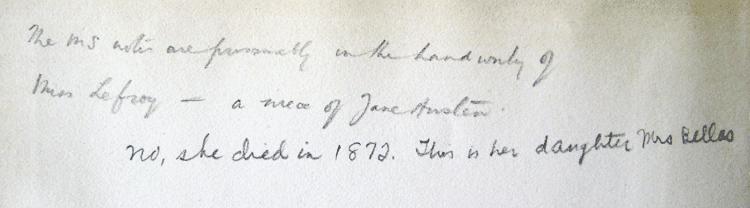 The MS notes are presumably in the hand writg of
Miss Lefroy — a niece of Jane Austen.
No, she died in 1872. This is her daughter Mrs Bellas